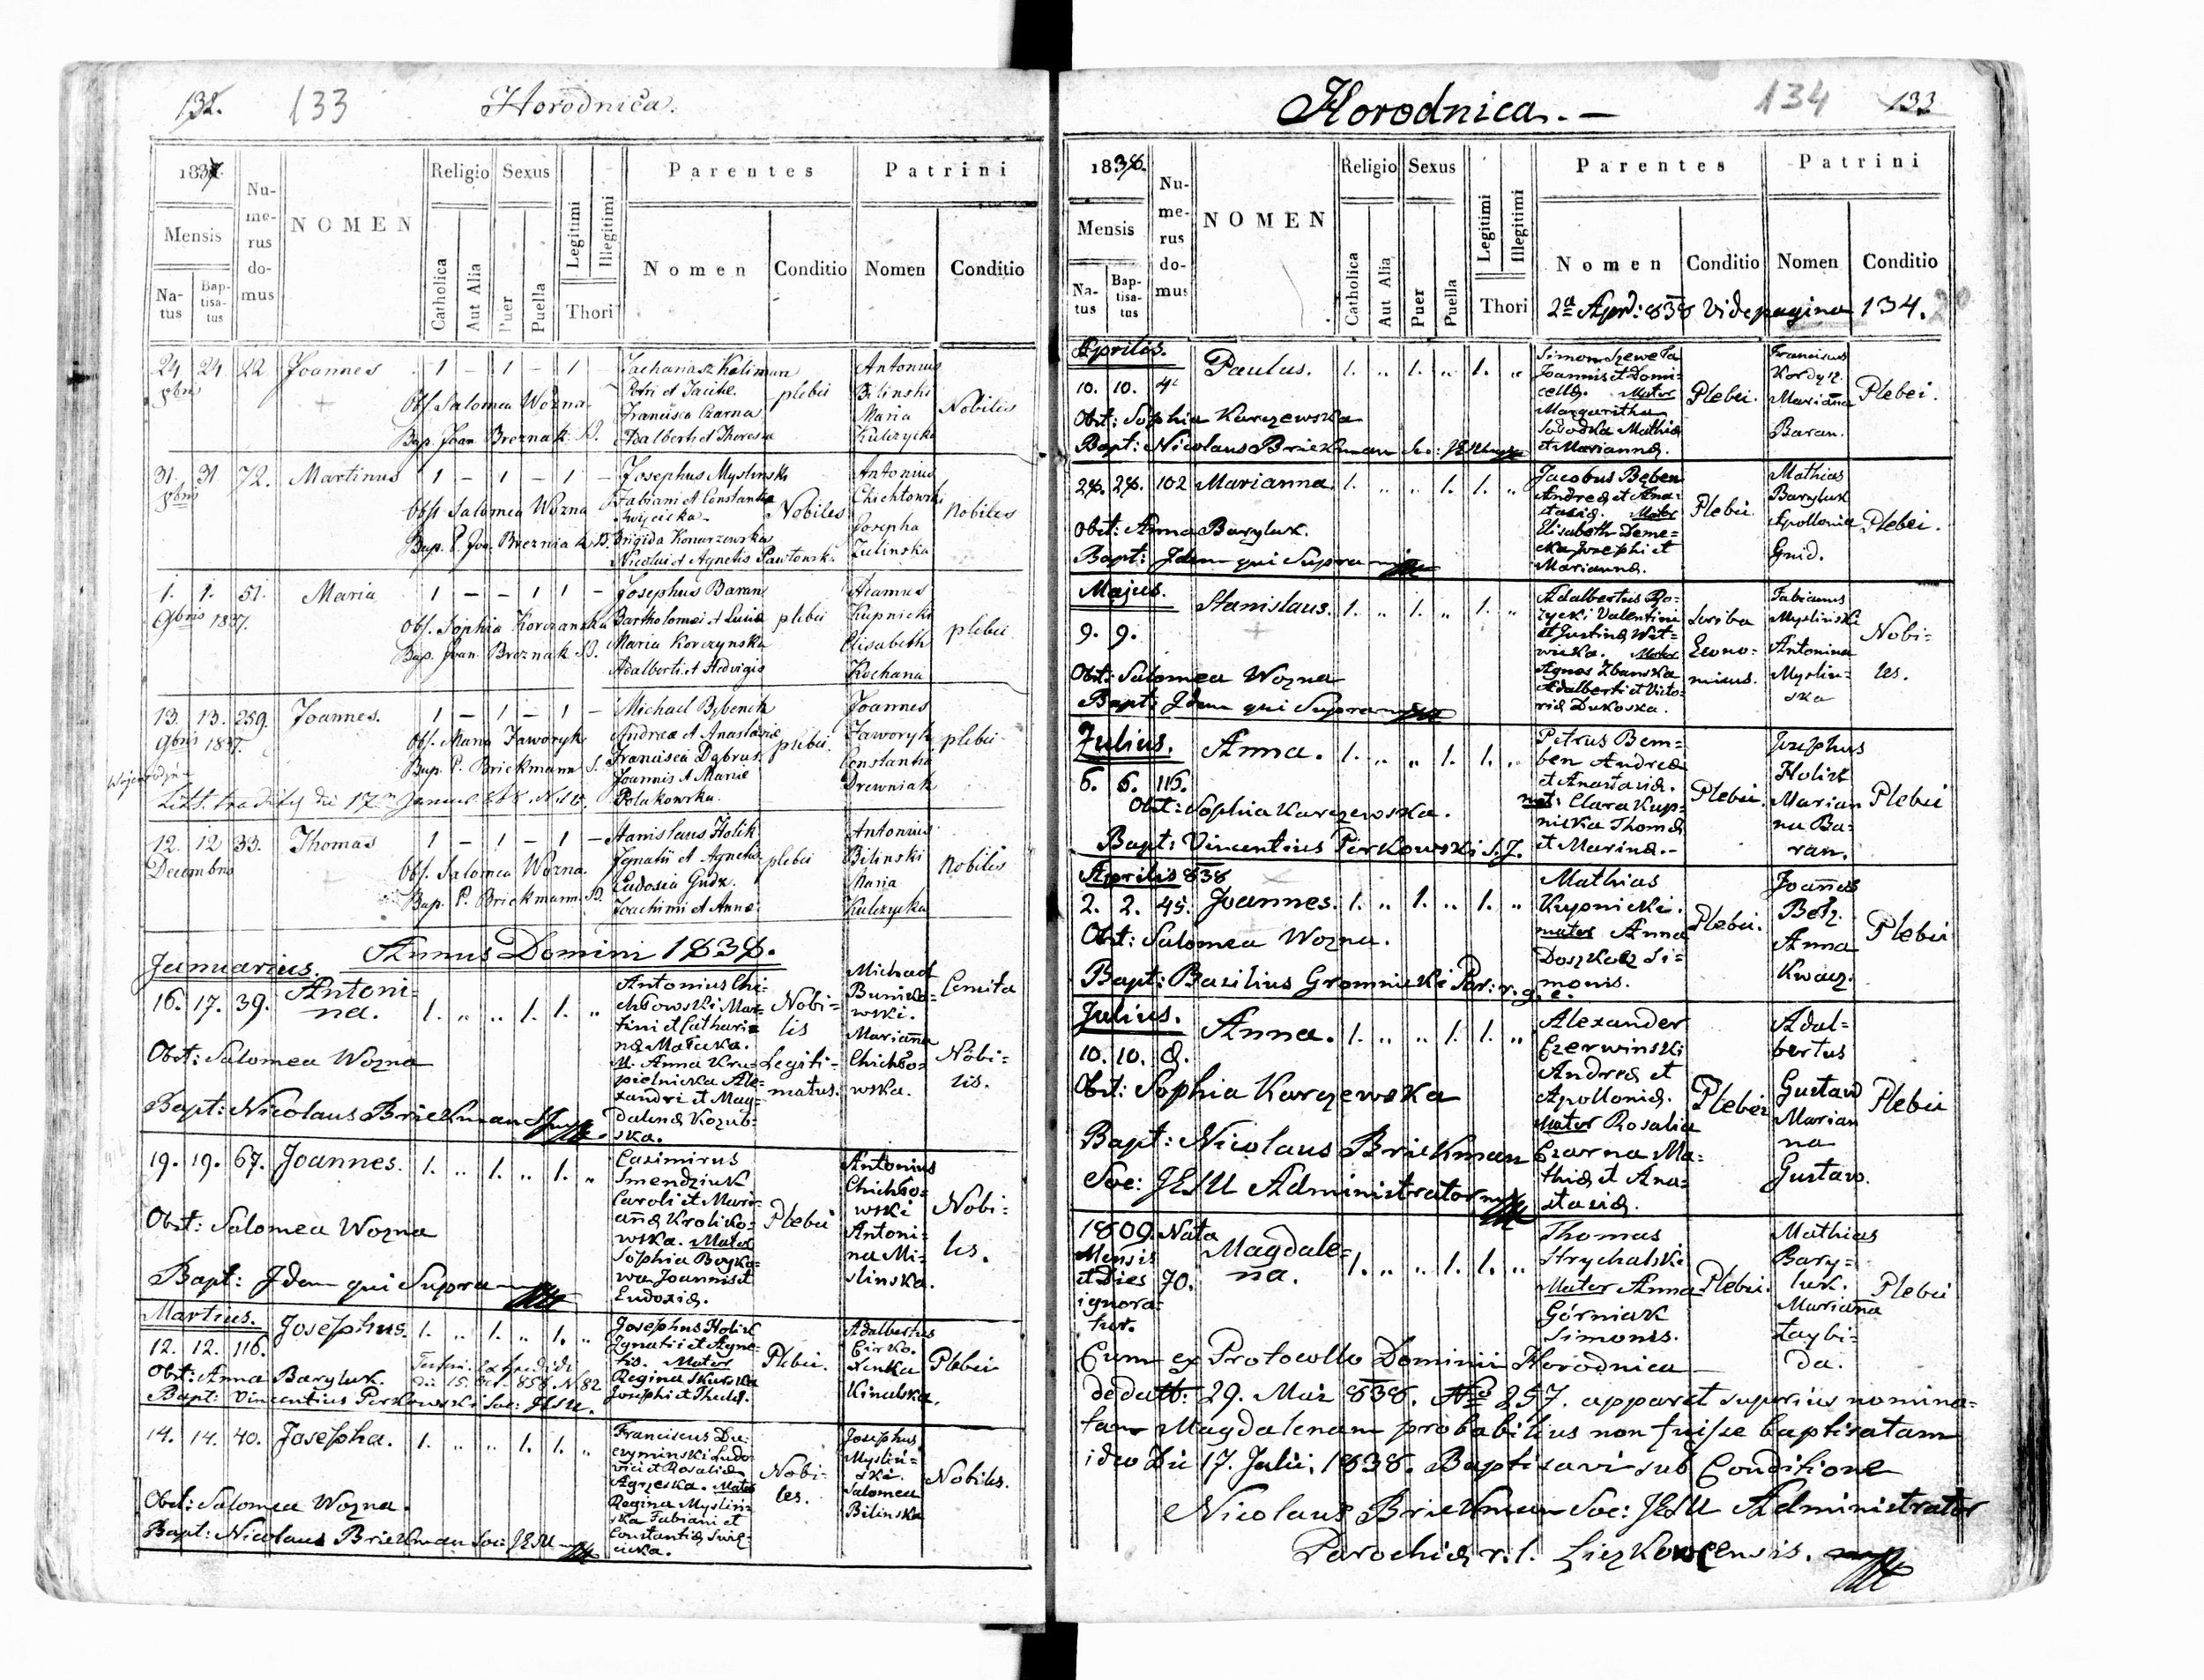 132. 133 Horodnica.
1837
Mensis
Na-
tus
Bap-
tisa-
tus
Nu-
me-
rus
do-
mus
NOMEN
Religio
Catholica
Aut Alia
Sexus
Puer
Puella
Legitimi
Illegitimi
Thori
Parentes
Nomen
Conditio
Patrini
Nomen
Conditio
24 24 22 Joannes 1 – 1 – 1
Obs. Salomea Wozna
Bap. Joan Breznak
Zacharias Kaliman
Petri et
Francisca Czarna
Adalberti et Theresia
plebei
Antonius
Bilinski
Maria
Kulczycka
Nobiles
31 31 72. Martinus 1 – 1 – 1 –
Obst Salomea Wozna
Bap. P. Joa. Brezniak
Josephus Myslinski
Fabiani et Constantia
Swięcicka
Brigida Konarzewska
Nicolai et Agnetis Pawłowska
Nobiles
Antonius
Chichłowski
Josepha
Zulinska
Nobiles
1. 1. 51. Maria 1 – – 1 1 –
9bris 1837.
Obs. Sophia Korczanska
Bap. Joan Breznak
Josephus Baran
Bartholomei et Luciæ
Maria Korczynska
Adalberti et Hedvigis
plebei
Adamus
Kupnicki
Elisabeth
Kochana
plebei
13. 13. 259. Joannes. 1 – 1 – 1 –
9bris 1837.
Obs. Maria Jaworyk
Bap. P. Brickmann S.
Michael Bębench
Andrea et Anastasiæ
Francisca Dąbrus
Joannis et Mariæ
Polakowska.
plebei.
Joannes
Jaworyk
Constantia
Drewniak
plebei
12. 12 33. Thomas 1 – 1 – 1 –
Decembris
Obs. Salomea Wozna
Bap. P. Brickmann.
Stanislaus Holik
Ignatii et Agnetis
Eudosia Gudz.
Joachimi et Annæ
plebei
Antonius
Bilinski
Maria
Kulczycka
Nobiles
Annus Domini 1838.
Januarius.
16. 17. 39. Antoni-
na. 1. „ „ 1. 1. „
Obst: Salomea Wozna
Bapt: Nicolaus Briekman
Antonius Chi-
chłowski Mar-
tini et Cathari-
næ
M. Anna Kru-
pielnicka Ale-
xandri et Mag-
dalenæ Kozub-
ska.
Nobi-
lis
Legiti-
matus.
Michael
Buniko-
wski.
Marianna
Chichło-
wska.
Comita
Nobi-
lis.
19. 19. 67. Joannes. 1. „ 1. „ 1. „
Obst: Salomea Wozna
Bapt: Idem qui Supra
Casimirus
Smendziuk
Caroli et Mari-
annæ Kroliko-
wska. Mater
Sophia Boyko-
wa Joannis et
Eudoxiæ.
Plebei
Antonius
Chichło-
wski
Antoni-
na Mi-
slinska.
Nobi-
les.
Martius.
12. 12. 116. Josephus. 1. „ 1. „ 1. „
Obst: Anna Baryluk.
Bapt: Vincentius Perkowski Soc: JESU.
Josephus Holik
Ignatii et Agne-
tis. Mater
Regina Skurska
Josephi et Theclæ.
Plebei.
Adalbertus
Cirko.
Xenka
Kinalska.
Plebei
14. 14. 40. Josepha. 1. „ „ 1. 1. „
Obst: Salomea Wozna.
Bapt: Nicolaus Briekman Soc: JESU
Franciscus Du-
czyminski Ludo-
vici et Rosaliæ
Agrzeska. Mater
Regina Myslin-
ska Fabiani et
Constantiæ Swię-
cicka.
Nobi-
les.
Josephus
Myslin-
ski.
Salomea
Bilinska
Nobiles.
Horodnica. – 134 133
1838.
Mensis
Na-
tus
Bap-
tisa-
tus
Nu-
me-
rus
do-
mus
NOMEN
Religio
Catholica
Aut Alia
Sexus
Puer
Puella
Legitimi
Illegitimi
Thori
Parentes
Nomen
Conditio
Patrini
Nomen
Conditio
2a Apri: 838 Vide pagina 134.
Aprilis.
10. 10. 4. Paulus. 1. „ 1. „ 1. „
Obst: Sophia Karczewska
Bapt: Nicolaus Briekman
Simon Szewcza
Joannis et Domi-
cellæ. Mater
Margaritha
Sobodka Mathiæ
et Mariannæ.
Plebei.
Franciscus
Kordysz.
Marianna
Baran.
Plebei.
28. 28. 102 Marianna. 1. „ „ 1. 1. „
Obst: Anna Baryluk.
Bapt: Idem qui Supra
Jacobus Bęben
Andreæ et Ana-
stasiæ. Mater
Elisabeth Deme-
cka Josephi et
Mariannæ.
Plebei
Mathias
Baryluk
Apollonia
Gnid.
Plebei.
Majus.
9. 9. Stanislaus. 1. „ 1. „ 1. „
Obst: Salomea Wozna
Bapt: Idem qui Supra
Adalbertus Ro-
zycki Valentini
et Justinæ Wit-
wicka. Mater
Agnes Zbanska
Adalberti et Victo-
riæ Dukoska.
Scriba
Econo-
micus.
Fabianus
Mysliński
Antonina
Myslin-
ska
Nobi-
les.
Julius.
6. 6. 115. Anna. 1. „ „ 1. 1. „
Obst: Sophia Karczewska.
Bapt: Vincentius Perkowski S.J.
Petrus Bem-
ben Andreæ
et Anastasiæ.
mat: Clara Kup-
nicka Thomæ
et Marinæ.-
Plebei.
Josephus
Holik
Marian
na Ba-
ran.
Plebei
Aprilis 838
2. 2. 45. Joannes. 1. „ 1. „ 1. „
Obst: Salomea Wozna.
Bapt: Basilius Gromnicki Par: r. g. c.
Mathias
Kupnicki.
mater Anna
Doszkocz Si-
monis.
Plebei.
Joannes
Bełz.
Anna
Kwacz.
Plebei
Julius.
10. 10. 8. Anna. 1. „ „ 1. 1. „
Obst: Sophia Karczewska
Bapt: Nicolaus Briekman
Soc: JESU Administrator
Alexander
Czerwinski
Andreæ et
Apolloniæ.
Mater Rosalia
Czarna Ma-
thiæ et Ana-
stasiæ.
Plebei
Adal-
bertus
Gustaw
Marian
na
Gustaw.
Plebei
1809. Nata
Mensis
et Dies
ignora-
tur.
70. Magdale-
na. 1. „ „ 1. 1. „
Thomas
Strychalski
Mater Anna
Górniak
Simonis.
Plebei.
Mathias
Bary-
luk.
Marianna
Zaybi-
da.
Plebei
Cum ex Protocollo Dominii Horodnica
de datto: 29. Mai 838. No 257. apparet superius nomina-
tam Magdalenam probabilius non fuisse baptisatam
ideo Die 17. Julii. 1838. Baptisavi sub Conditione
Nicolaus Briekman Soc: JESU Administrator
Parochiæ r. l. Liczkowcensis.